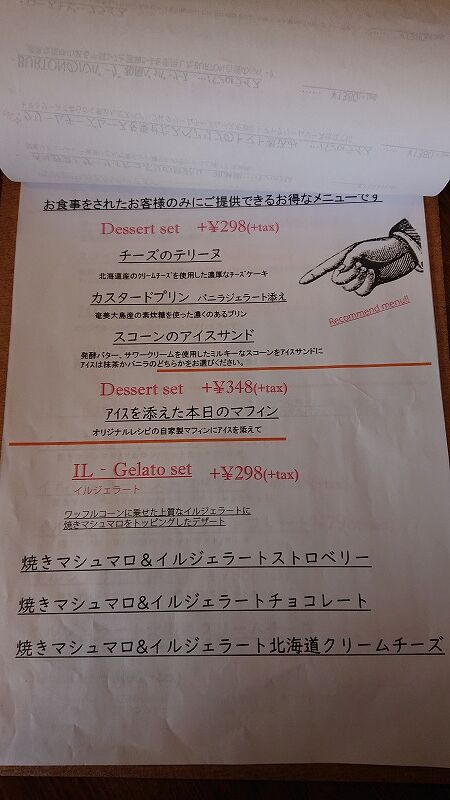 お食事をされたお客様のみにご提供できるお得なメニューです
Dessert set +¥298(+tax)
チーズのテリーヌ
北海道産のクリームチーズを使用した濃厚なチーズケーキ
カスタードプリン バニラジェラート添え
奄美大島産の素炊糖を使った濃くのあるプリン
Recommend menu!!
スコーンのアイスサンド
発酵バター、サワークリームを使用したミルキーなスコーンをアイスサンドに
アイスは抹茶かバニラのどちらかをお選びください。
Dessert set +¥348(+tax)
アイスを添えた本日のマフィン
オリジナルレシピの自家製マフィンにアイスを添えて
IL - Gelato set +¥298(+tax)
イルジェラート
ワッフルコーンに乗せた上質なイルジェラートに
焼きマシュマロをトッピングしたデザート
焼きマシュマロ&イルジェラートストロベリー
焼きマシュマロ&イルジェラートチョコレート
焼きマシュマロ&イルジェラート北海道クリームチーズ